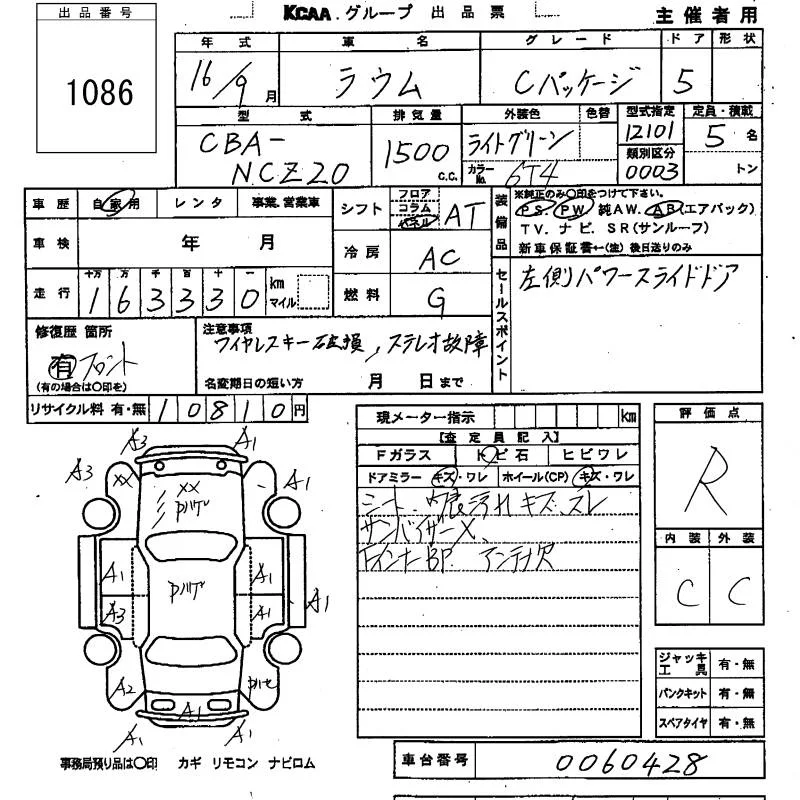 出品番号
1086
KCAA.グループ 出品票
主催者用
年式 車名 グレード ドア 形状
16/9月 ラウム Cパッケージ 5
型式 排気量 外装色 色替 型式指定 定員・積載
CBA-NCZ20 1500c.c. ライトグリーン 12101 5名
カラーNo. 6T4 類別区分 0003 トン
車歴 自家用 レンタ 事業.営業車
車検 年 月
走行 十万 万 千 百 十 一 km マイル
163330
シフト フロア コラム パネル AT
冷房 AC
燃料 G
装備品
※純正のみ○印をつけて下さい。
PS. PW 純AW. AB(エアバック)
TV. ナビ. SR(サンルーフ)
新車保証書←(注)後日送りのみ
セールスポイント
左側パワースライドドア
修復歴 箇所
有 フロント
(有の場合は○印を)
注意事項
ワイヤレスキー破損, ステレオ故障
名変期日の短い方 月 日まで
リサイクル料 有・無 10810円
現メーター指示 km
【査定員記入】
Fガラス トビ石 ヒビワレ
ドアミラー キズ・ワレ ホイール(CP) キズ・ワレ
シート、内張汚れ キズ、スレ
サンバイザーX、
FインナーBP. アンテナ欠
評価点
R
内装 外装
C C
ジャッキ工具 有・無
パンクキット 有・無
スペアタイヤ 有・無
A3 A1
A3 XX XX A1
Pハゲ
A1 Pハゲ A1
A3 A1 A1
A2 A1
A1 A1
事務局預り品は○印 カギ リモコン ナビロム
車台番号 0060428